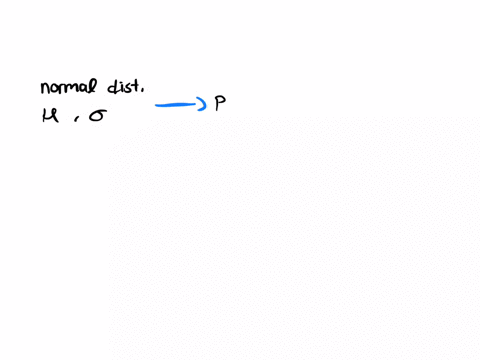 normal dist.
μ , σ
P